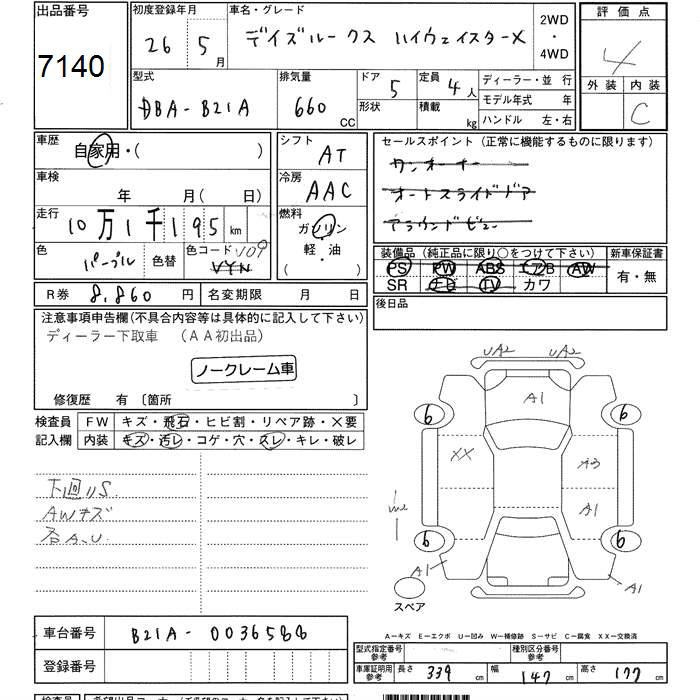 出品番号
7140
初度登録年月
26年 5月
車名・グレード
デイズルークス ハイウェイスターX
2WD
・
4WD
評価点
4
外装 内装
C
型式
DBA-B21A
排気量
660 CC
ドア 5
形状
定員 4人
積載 kg
ディーラー・並 行
モデル年式 年
ハンドル 左・右
車歴
自家用・( )
シフト
AT
セールスポイント (正常に機能するものに限ります)
ワンオーナー
オートスライドドア
アラウンドビュー
車検
年 月( 日)
冷房
AAC
走行
10万1千195km
燃料
ガソリン
軽・油
( )
色
パープル
色替
色コード 109
装備品 (純正品に限り○をつけて下さい)
PS PW ABS エアB AW
SR ナビ TV カワ
新車保証書
有・無
R券 8,860円
名変期限 月 日
後日品
注意事項申告欄(不具合内容等は具体的に記入して下さい)
ディーラー下取車 (AA初出品)
ノークレーム車
修復歴 有 〔箇所 〕
検査員
記入欄
FW キズ・飛石・ヒビ割・リペア跡・X要
内装 キズ・汚レ・コゲ・穴・スレ・キレ・破レ
下回りS.
AWキズ
各A.U
UA2 UA2
A1
6 6
XX A3
A1
6 6
A1 A1
スペア
A−キズ E−エクボ U−凹み W−補修跡 S−サビ C−腐食 XX−交換済
車台番号
B21A-0036588
登録番号
型式指定番号
参考
種別区分番号
参考
車庫証明用
参考
長さ 339
幅 147
高さ 177